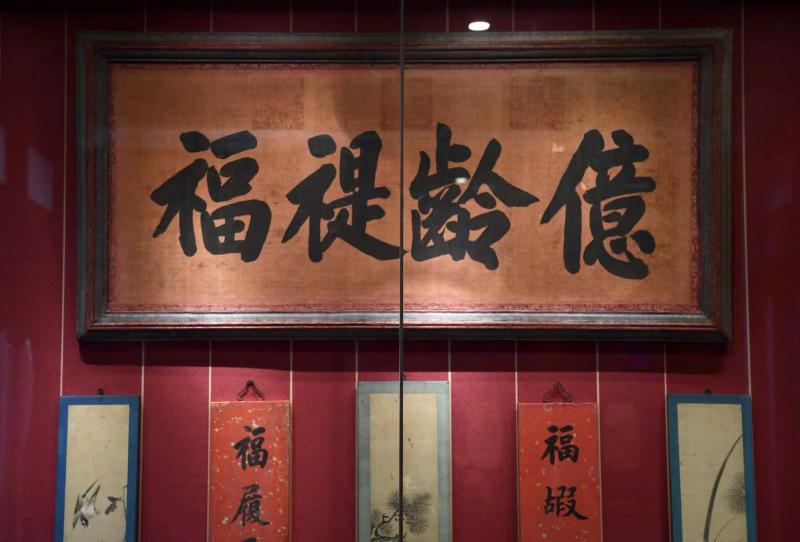 億齡禔福
福嘏
福履